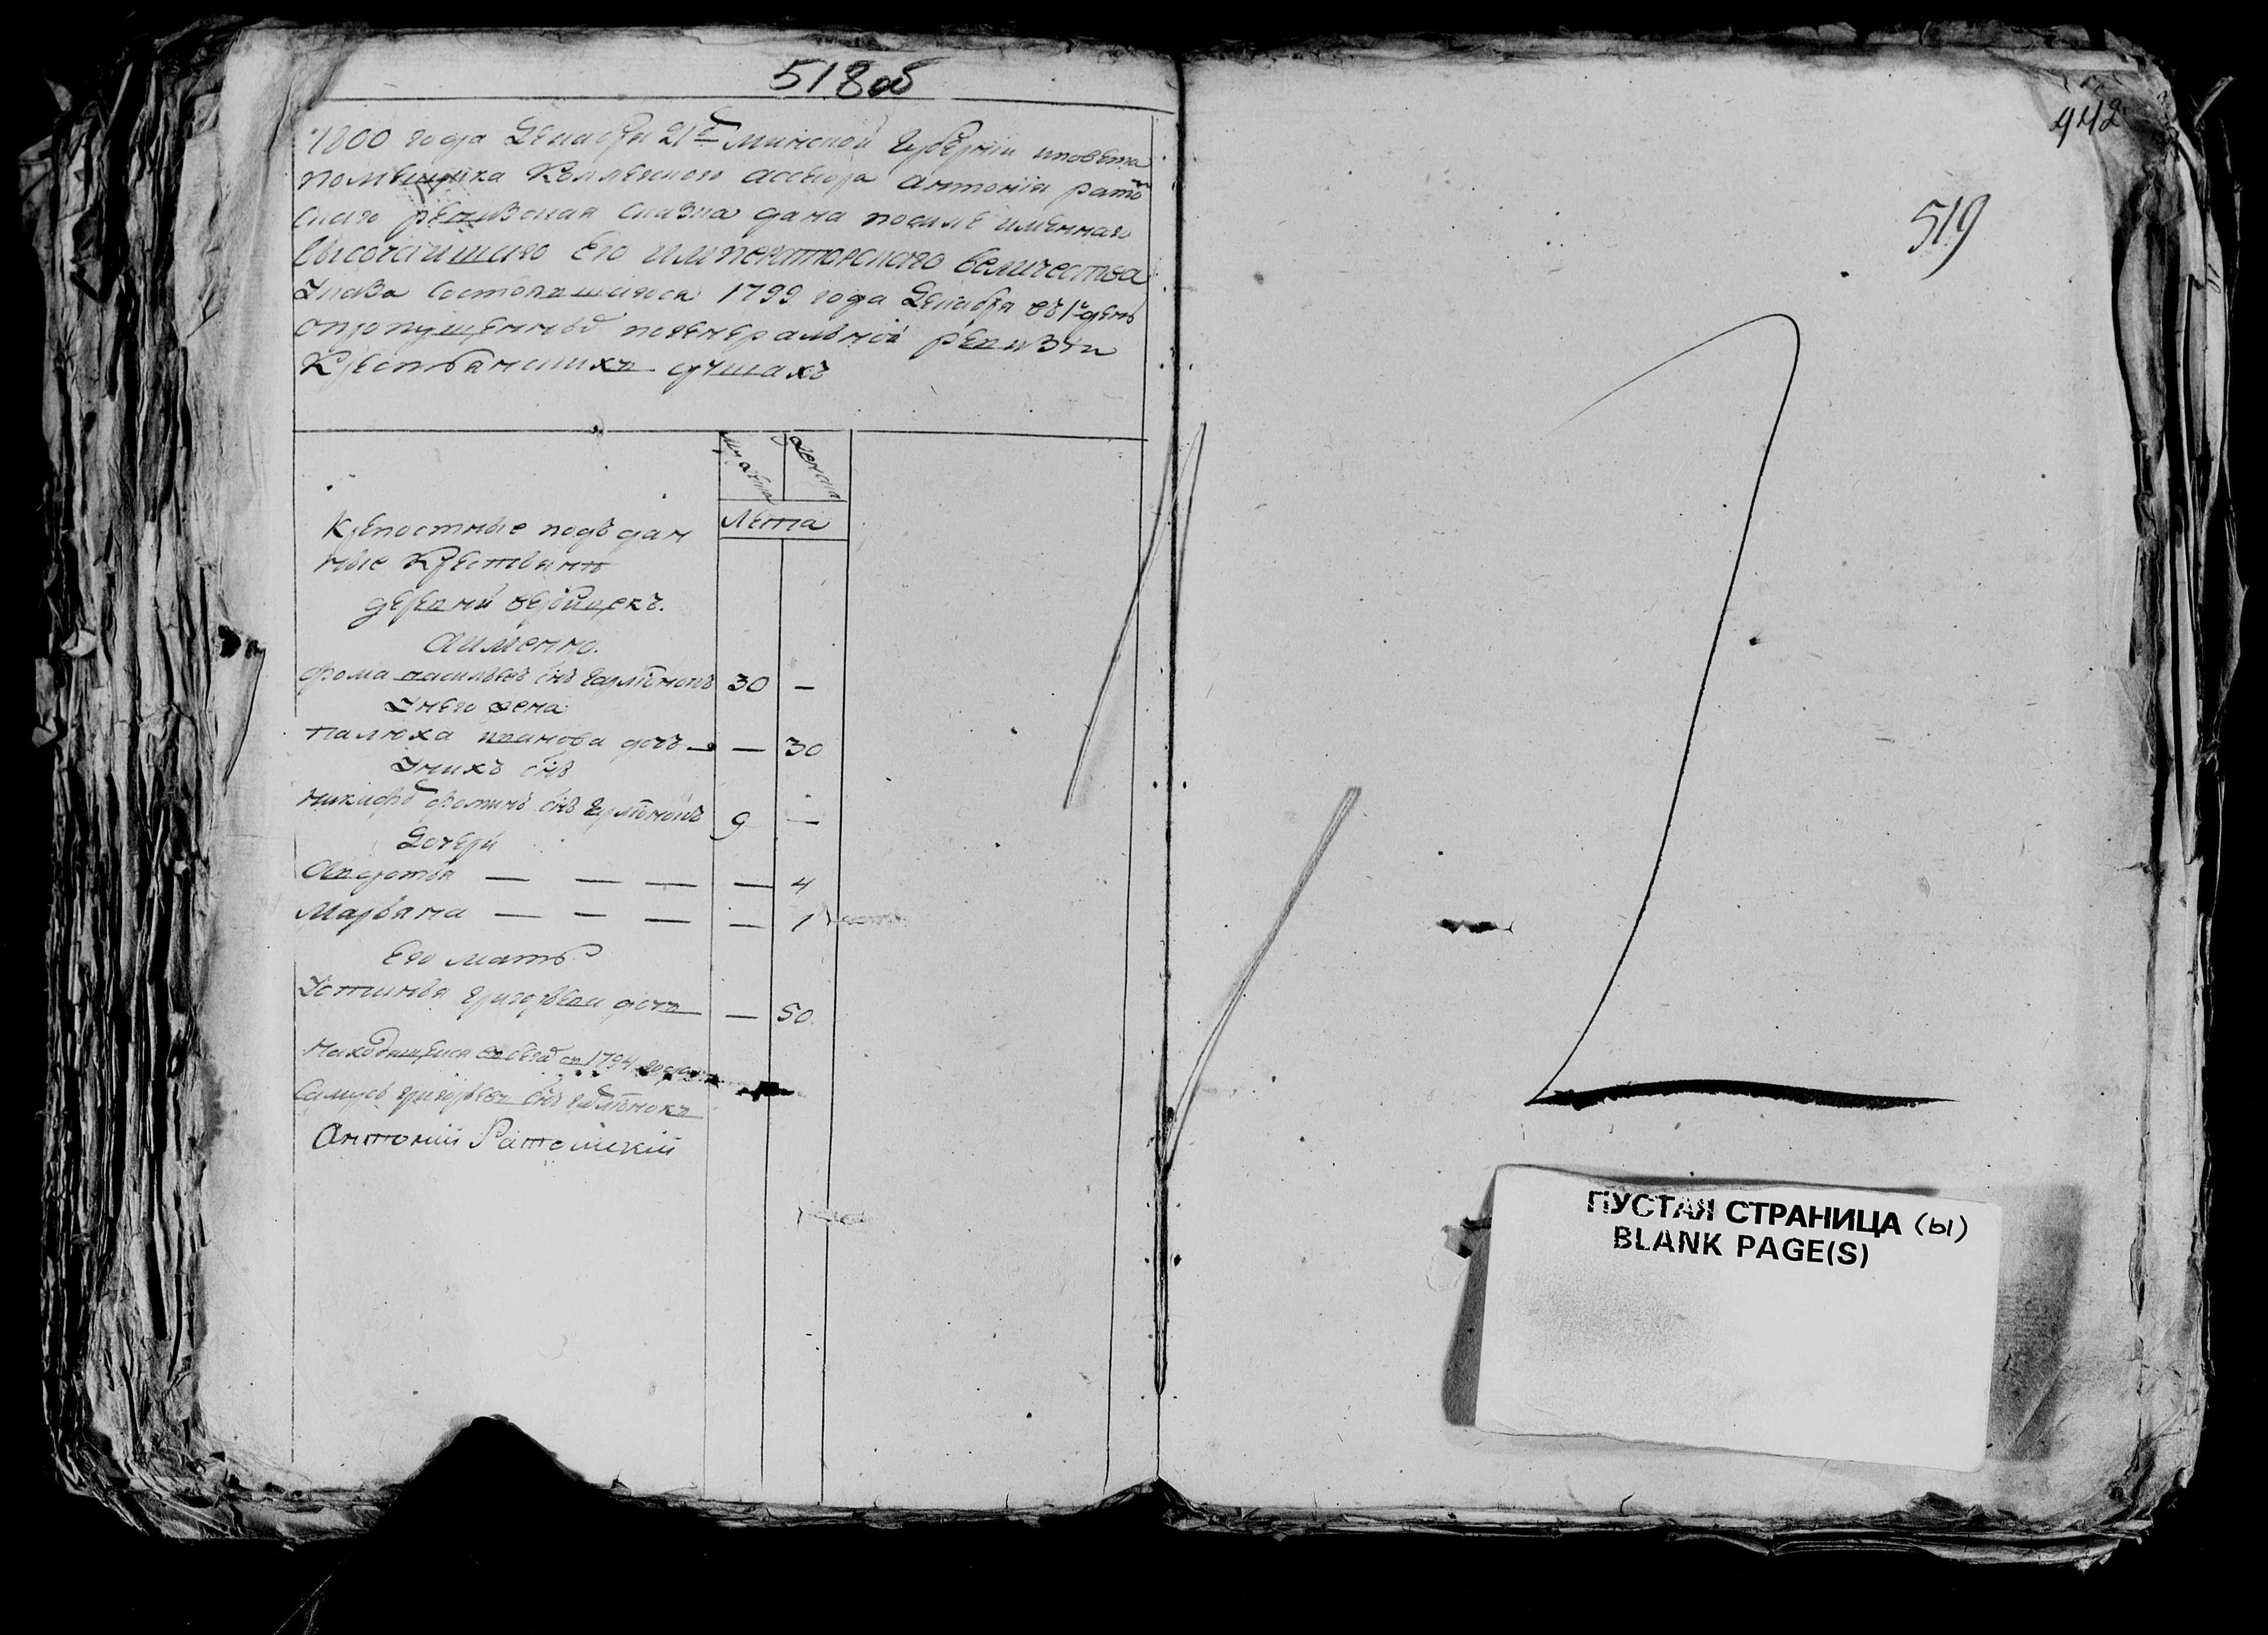 518об
1800 года Декабря 21г Минской Губернии иповета
помещика Коллежского ассесора Антония рато
скаго ревизская сказка дана посиле имяннаго
высочайшаго Его императорскаго величества
Указа состоявшагося 1799 года Декабря въ 1 день
опропущенныхъ погенеральной ревизiи
Крестьянскихъ душахъ
мужска
женска
Лета
Крепостные подъдан
ные Крестьяне
деревни
Аименно.
фома васильевъ снъ
Унего жена
Палюха иванова дочь — — 30
Унихъ снъ
никифоръ фоминъ снъ 9 —
Дочери
Авдотья — — — — 4
Марьяна — — — — 1
Его мать
Устинья григорьева дочь — 50
Находящейся въ бегахъ съ 1794 года
Самусь григорьевъ снъ
Антоний Ратомский
442
519
ПУСТАЯ СТРАНИЦА (ы)
BLANK PAGE(S)